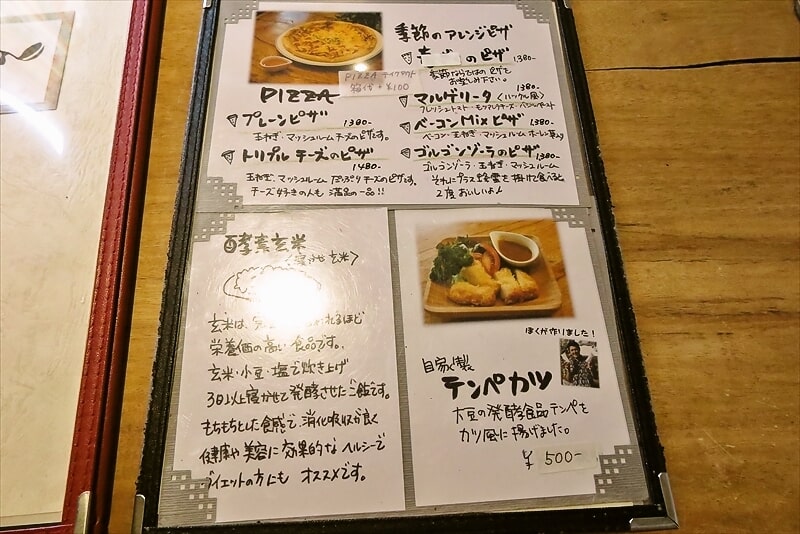 PIZZA テイクアウト
箱代 + ¥100
PIZZA
プレーンピザ
1380-
玉ねぎ・マッシュルーム チーズのピザです。
トリプル チーズのピザ
1480-
玉ねぎ、マッシュルーム たっぷり チーズのピザです。
チーズ好きの人も 満足の一品!!
季節のアレンジピザ
のピザ 1380-
季節ならではの ピザを
お楽しみ下さい。
1380-
マルゲリータ
フレッシュトマト・モッツァレラチーズ・バジルペースト
ベーコンMixピザ
1380-
ベーコン・玉ねぎ・マッシュルーム ホーレン草入り
ゴルゴンゾーラのピザ
1380-
ゴルゴンゾーラ・玉ねぎ・マッシュルーム
それにプラス蜂蜜を掛けて食べると
2度おいしいよ♪
酵素玄米
<寝かせ玄米>
玄米は、
れるほど
栄養価の高い食品です。
玄米・小豆・塩で炊き上げ
3日以上寝かせて発酵させたご飯です。
もちもちとした食感で、消化吸収が良く
健康や美容に効果的なヘルシーで
ダイエットの方にも オススメです。
ぼくが作りました!
自家製
テンペカツ
大豆の発酵食品テンペを
カツ風に揚げました。
¥ 500-